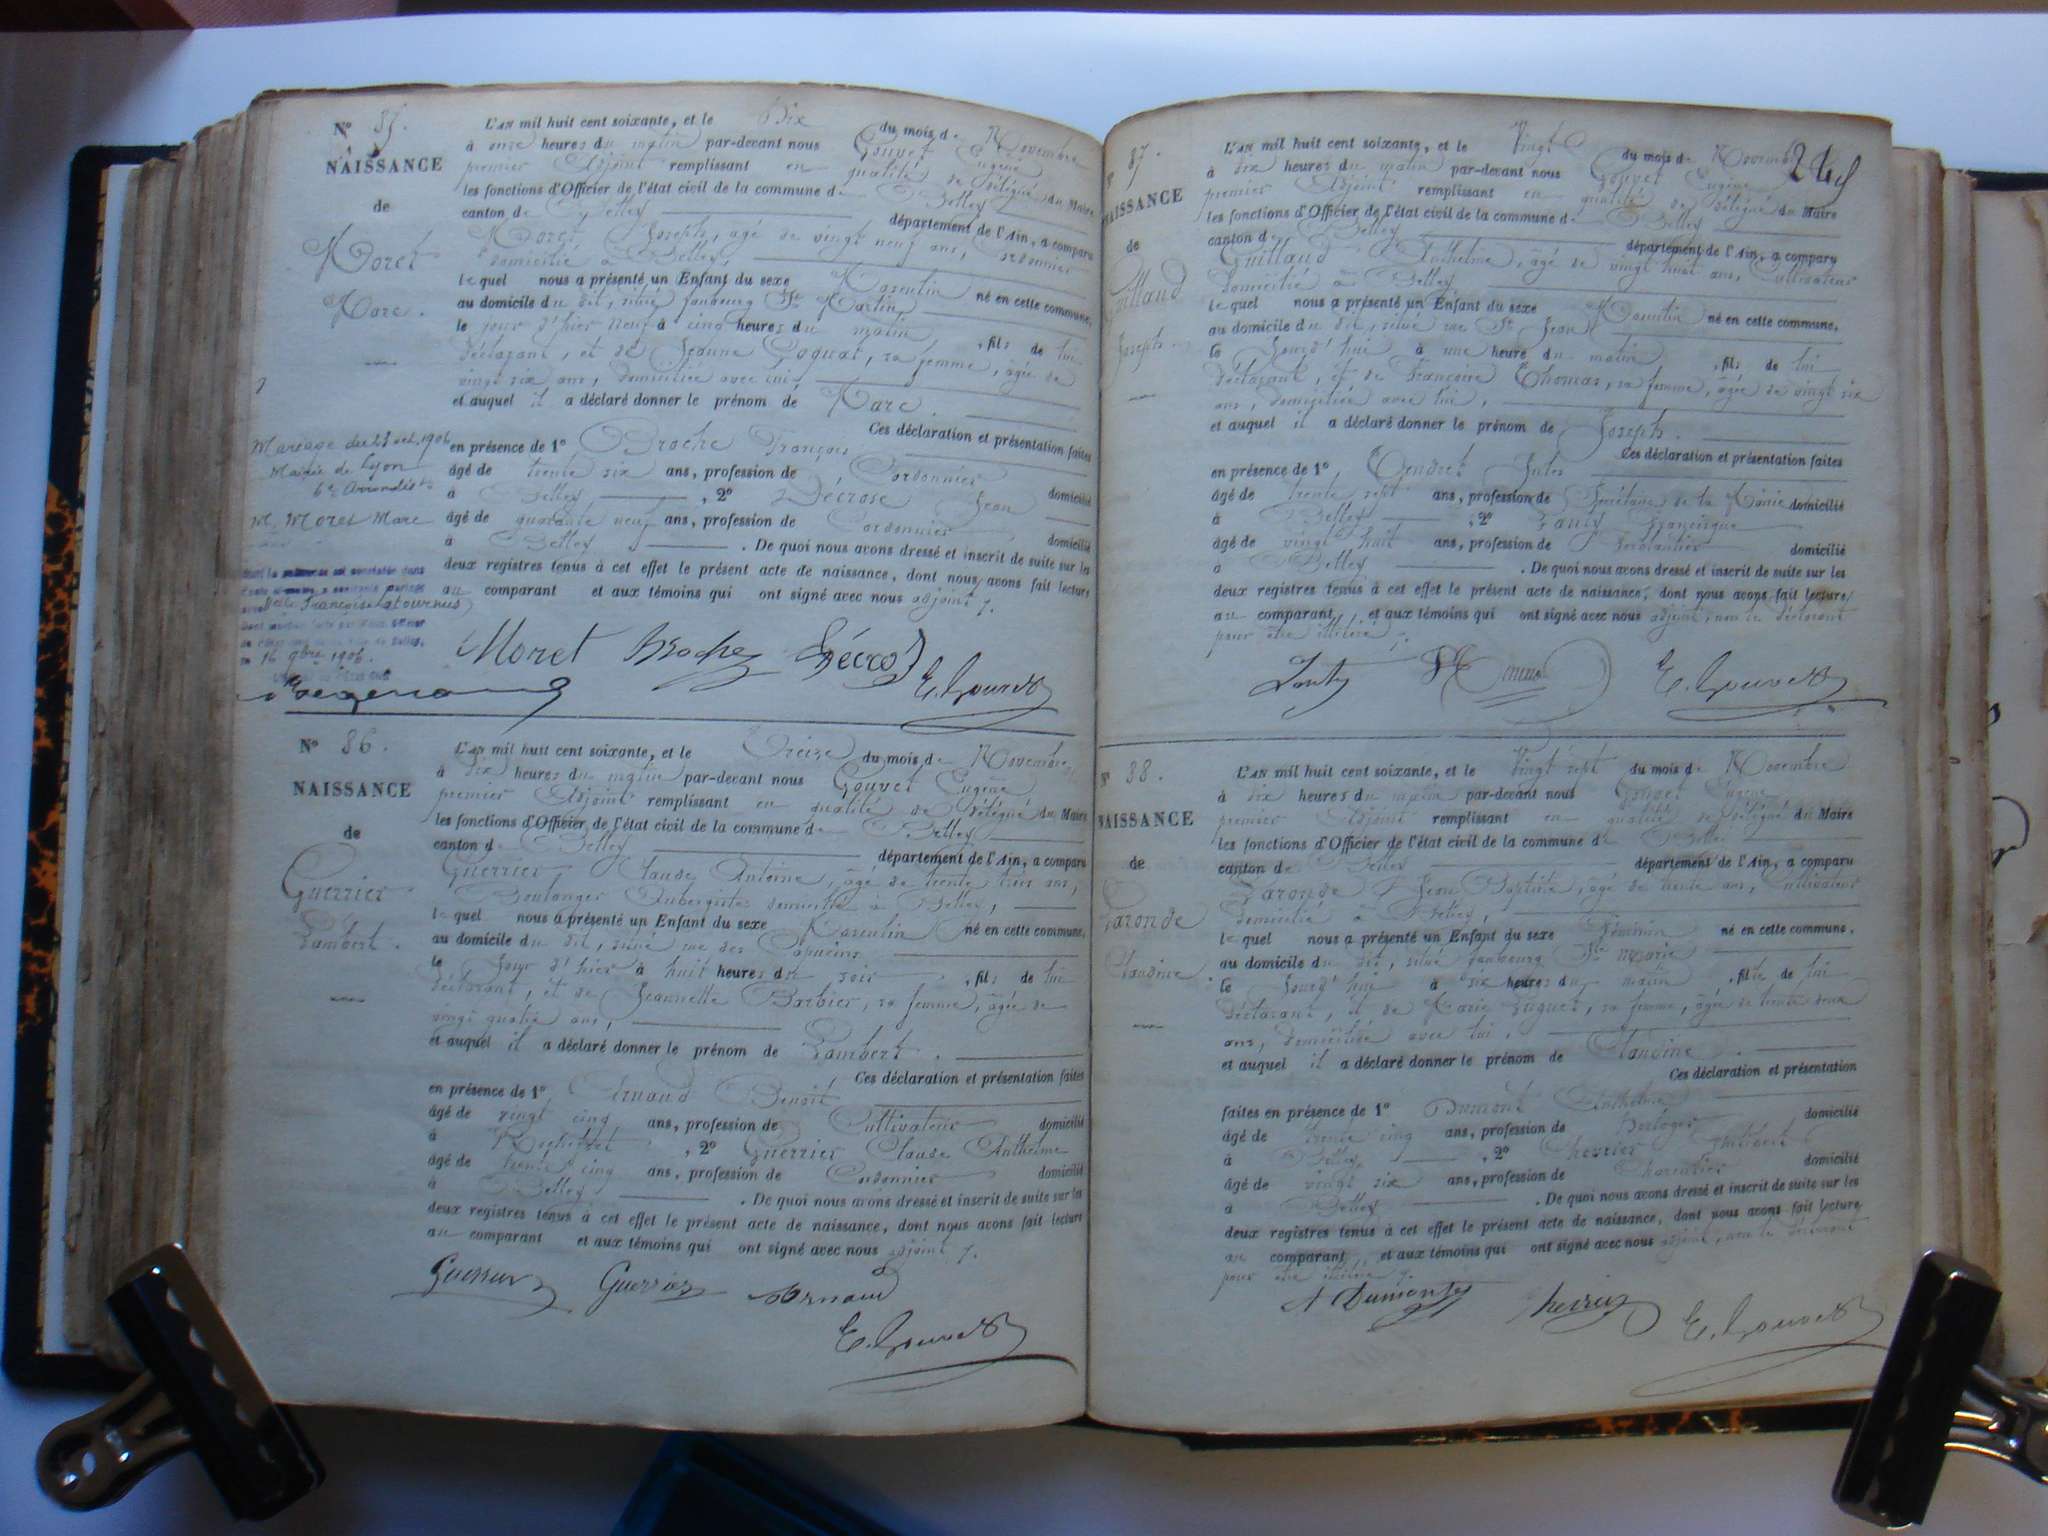 N° 85.
NAISSANCE
de
Moret
Marc.
L'AN mil huit cent soixante, et le Dix du mois de Novembre
à onze heures du matin par-devant nous Gouvet Eugène
premier Adjoint remplissant en qualité de délégué du Maire
les fonctions d'Officier de l'état civil de la commune de Belley
canton de Belley département de l'Ain, a comparu
Moret Joseph, âgé de vingt neuf ans, Cordonnier
domicilié à Belley,
lequel nous a présenté un Enfant du sexe Masculin né en cette commune,
au domicile du dit, situé faubourg St Martin
le jour d'hier neuf à cinq heures du matin, fils de lui
déclarant, et de Jeanne Coquat, sa femme, âgée de
vingt six ans, domiciliée avec lui,
et auquel il a déclaré donner le prénom de Marc.
Ces déclaration et présentation faites
en présence de 1° Broche François
âgé de trente six ans, profession de Cordonnier domicilié
à Belley, 2° Décrose Jean
âgé de quarante neuf ans, profession de Cordonnier domicilié
à Belley. De quoi nous avons dressé et inscrit de suite sur les
deux registres tenus à cet effet le présent acte de naissance, dont nous avons fait lecture
au comparant et aux témoins qui ont signé avec nous adjoint.
Moret Broche Décro E. Gouvet
Mariage du 28 oct. 1906
Mairie de Lyon
6e Arrondist
M. Moret Marc
Delle Françoise Latournus
16 9bre 1906.
N° 86.
NAISSANCE
de
Guerrier
Lambert.
L'AN mil huit cent soixante, et le Treize du mois de Novembre
à dix heures du matin par-devant nous Gouvet Eugène
premier Adjoint remplissant en qualité de délégué du Maire
les fonctions d'Officier de l'état civil de la commune de Belley
canton de Belley département de l'Ain, a comparu
Guerrier Claude Antoine, âgé de trente trois ans,
Boulanger Aubergiste domicilié à Belley,
lequel nous a présenté un Enfant du sexe Masculin né en cette commune,
au domicile du dit, situé rue des Capucins
le jour d'hier à huit heures du soir, fils de lui
déclarant, et de Jeannette Barbier, sa femme, âgée de
vingt quatre ans,
et auquel il a déclaré donner le prénom de Lambert.
Ces déclaration et présentation faites
en présence de 1° Arnaud Benoit
âgé de vingt cinq ans, profession de Cultivateur domicilié
à, 2° Guerrier Claude Anthelme
âgé de trente cinq ans, profession de Cordonnier domicilié
à Belley. De quoi nous avons dressé et inscrit de suite sur les
deux registres tenus à cet effet le présent acte de naissance, dont nous avons fait lecture
au comparant et aux témoins qui ont signé avec nous adjoint.
Guerrier Guerrier Arnaud
E. Gouvet
248
N° 87.
NAISSANCE
de
Guilland
Joseph
L'AN mil huit cent soixante, et le Vingt du mois de Novembre
à dix heures du matin par-devant nous Gouvet Eugène
premier Adjoint remplissant en qualité de délégué du Maire
les fonctions d'Officier de l'état civil de la commune de Belley
canton de Belley département de l'Ain, a comparu
Guilland Anthelme, âgé de vingt huit ans, Cultivateur
domicilié à Belley
lequel nous a présenté un Enfant du sexe Masculin né en cette commune,
au domicile du dit, situé rue St Jean
le jourd'hui à une heure du matin, fils de lui
déclarant, et de Françoise Thomas, sa femme, âgée de vingt six
ans, domiciliée avec lui,
et auquel il a déclaré donner le prénom de Joseph.
Ces déclaration et présentation faites
en présence de 1°, Jules
âgé de trente sept ans, profession de Secrétaire de la Mairie domicilié
à Belley, 2° Francisque
âgé de vingt huit ans, profession de Ferblantier domicilié
à Belley. De quoi nous avons dressé et inscrit de suite sur les
deux registres tenus à cet effet le présent acte de naissance, dont nous avons fait lecture
au comparant, et aux témoins qui ont signé avec nous adjoint, non le déclarant
pour être illitéré.
E. Gouvet
N° 88.
NAISSANCE
de
Laronde
Claudine.
L'AN mil huit cent soixante, et le Vingt sept du mois de Novembre
à dix heures du matin par-devant nous Gouvet Eugène
premier Adjoint remplissant en qualité de délégué du Maire
les fonctions d'Officier de l'état civil de la commune de Belley
canton de Belley département de l'Ain, a comparu
Laronde Jean Baptiste, âgé de trente ans, Cultivateur
domicilié à Belley,
lequel nous a présenté un Enfant du sexe Féminin né en cette commune,
au domicile du dit, situé faubourg
le jourd'hui à six heures du matin, fille de lui
déclarant, et de Marie Huguet, sa femme, âgée de trente deux
ans, domiciliée avec lui,
et auquel il a déclaré donner le prénom de Claudine.
Ces déclaration et présentation
faites en présence de 1° Dumont Anthelme
âgé de trente cinq ans, profession de Horloger domicilié
à Belley, 2° Chevrier Philibert
âgé de vingt six ans, profession de domicilié
à Belley. De quoi nous avons dressé et inscrit de suite sur les
deux registres tenus à cet effet le présent acte de naissance, dont nous avons fait lecture
au comparant, et aux témoins qui ont signé avec nous adjoint, non le déclarant
pour être illitéré.
A Dumont E. Gouvet